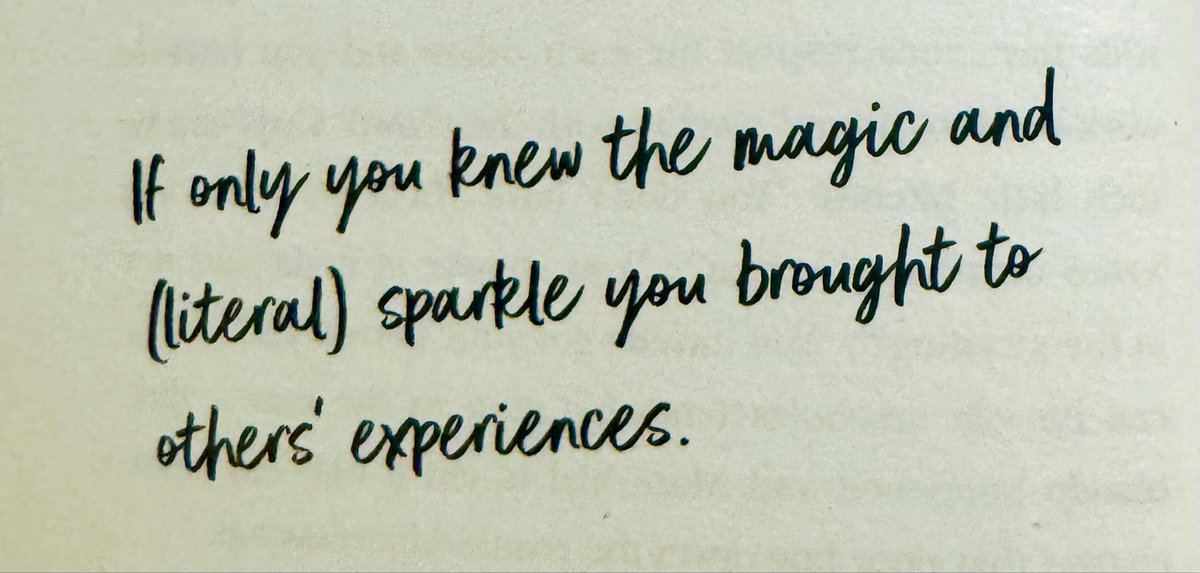 If only you knew the magic and
(literal) sparkle you brought to
others' experiences.